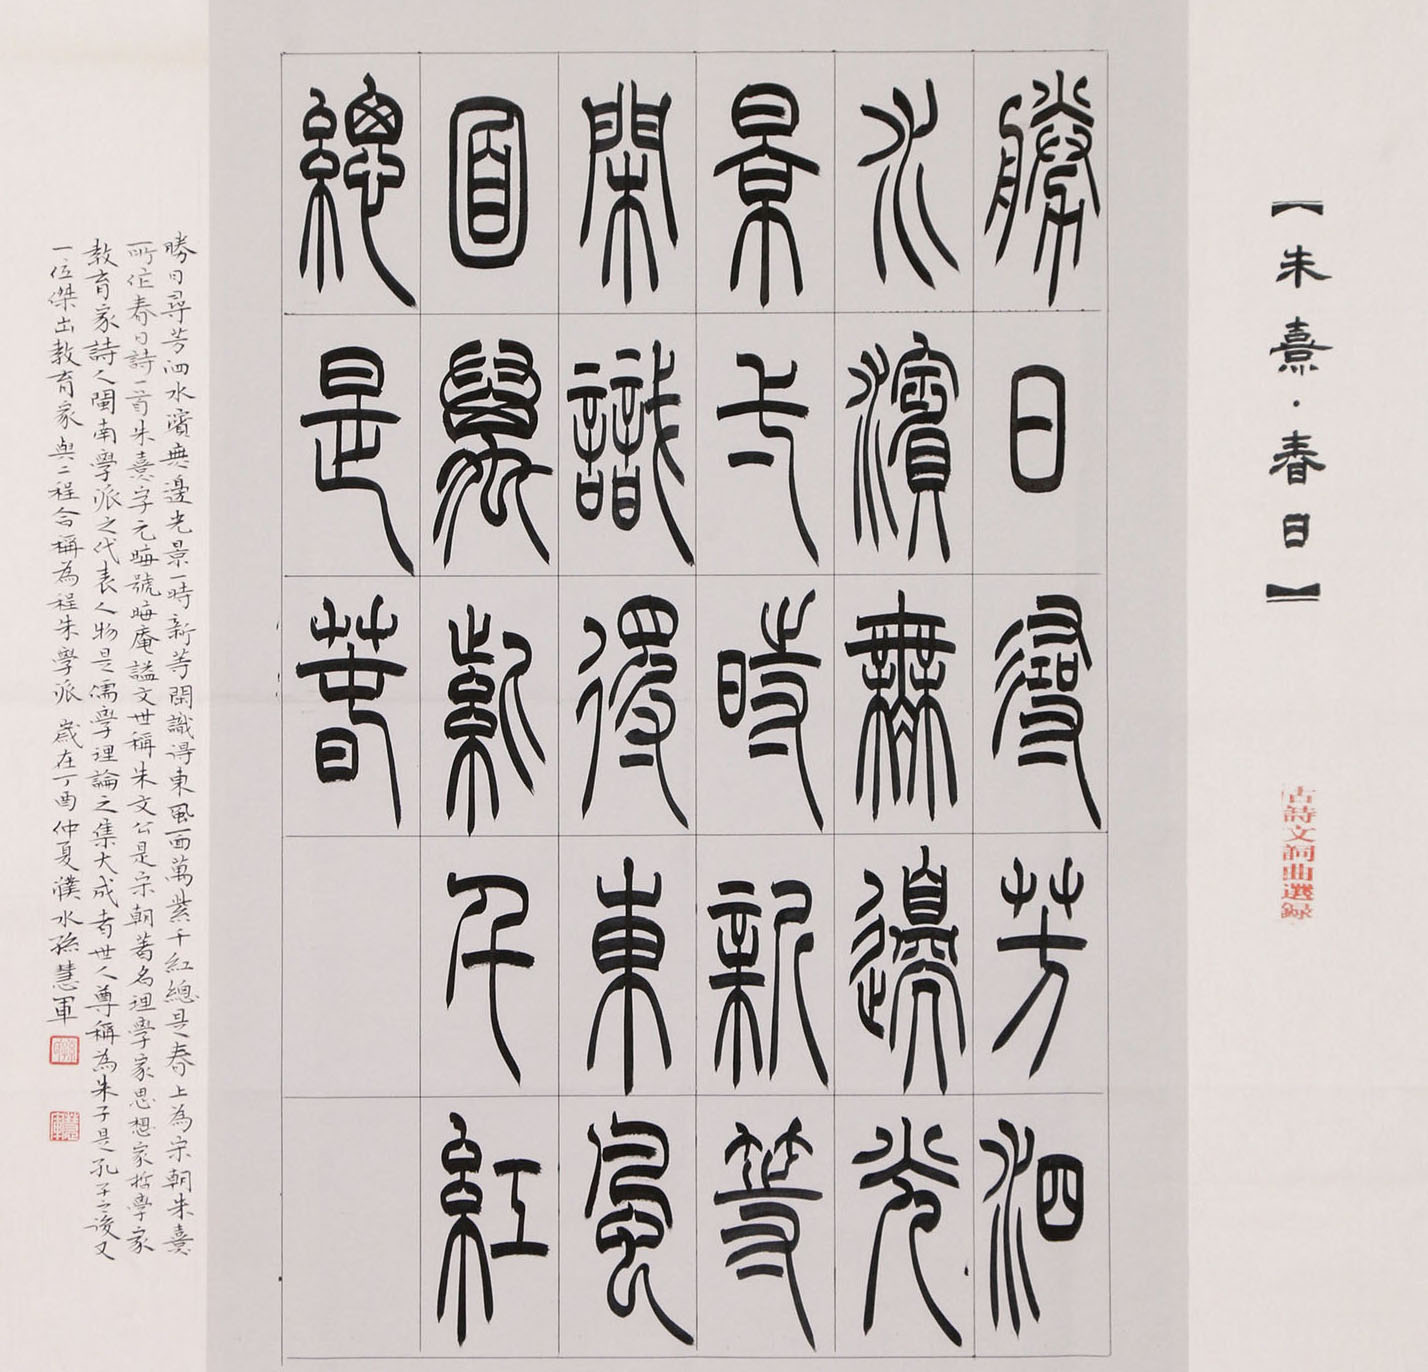 【朱熹·春日】
古詩文詞曲選録
勝日尋芳泗
水濱無邊光
景一時新等
閑識得東風
面萬紫千紅
總是春
勝日尋芳泗水濱無邊光景一時新等閑識得東風面萬紫千紅總是春上為宋朝朱熹
所作春日詩一首朱熹字元晦號晦庵謚文世稱朱文公是宋朝著名理學家思想家哲學家
教育家詩人閩南學派之代表人物是儒學理論之集大成者世人尊稱為朱子是孔子之後又
一位傑出教育家與二程合稱為程朱學派 歲在丁酉仲夏濮水孫慧軍